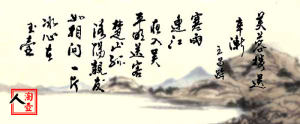 芙蓉楼送
辛渐
王昌龄
寒雨
连江
夜入吴
平明送客
楚山孤
洛阳亲友
如相问一片
冰心在
玉壶
人淘壶